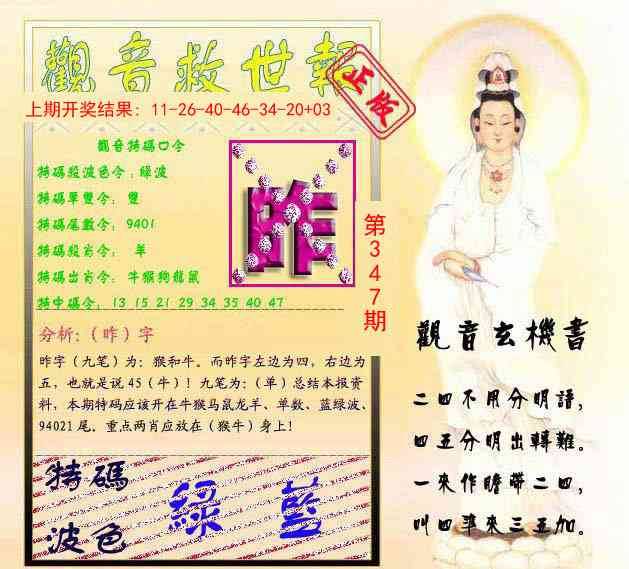 觀音救世報
正版
上期开奖结果：11-26-40-46-34-20+03
觀音特碼口令
特碼殺波色令：綠波
特碼單雙令： 雙
特碼尾數令：9401
特碼殺肖令： 單
特碼出肖令：牛猴狗龍鼠
特中碼令：13 15 21 29 34 35 40 47
昨
第347期
分析:（昨）字
昨字（九笔）为：猴和牛。而昨字左边为四，右边为
五，也就是说 45（牛）！九笔为：（单）总结本报资
料，本期特码应该开在牛猴马鼠龙羊、单数、蓝绿波、
94021 尾。重点两肖应放在（猴牛）身上！
特碼
波色
綠 藍
觀音玄機書
二四不用分明語，
四五分明出轉難。
一來作瞻帶二四，
叫四準來三五加。